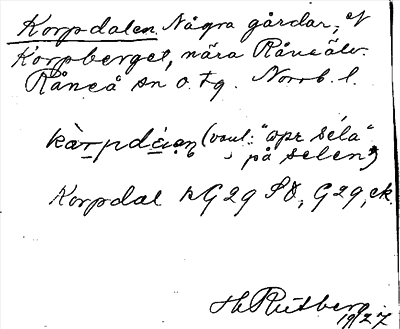 Korpdalen. Några gårdar, ef
Korpberget, nära Råneälv.
Råneå sn o. tg. Norrb. l.
kàrpdɛ́aṇ (vanl. "opr séla"
på selen)
Korpdal kG29 SÖ, G29, ek.
H Rutberg
1927